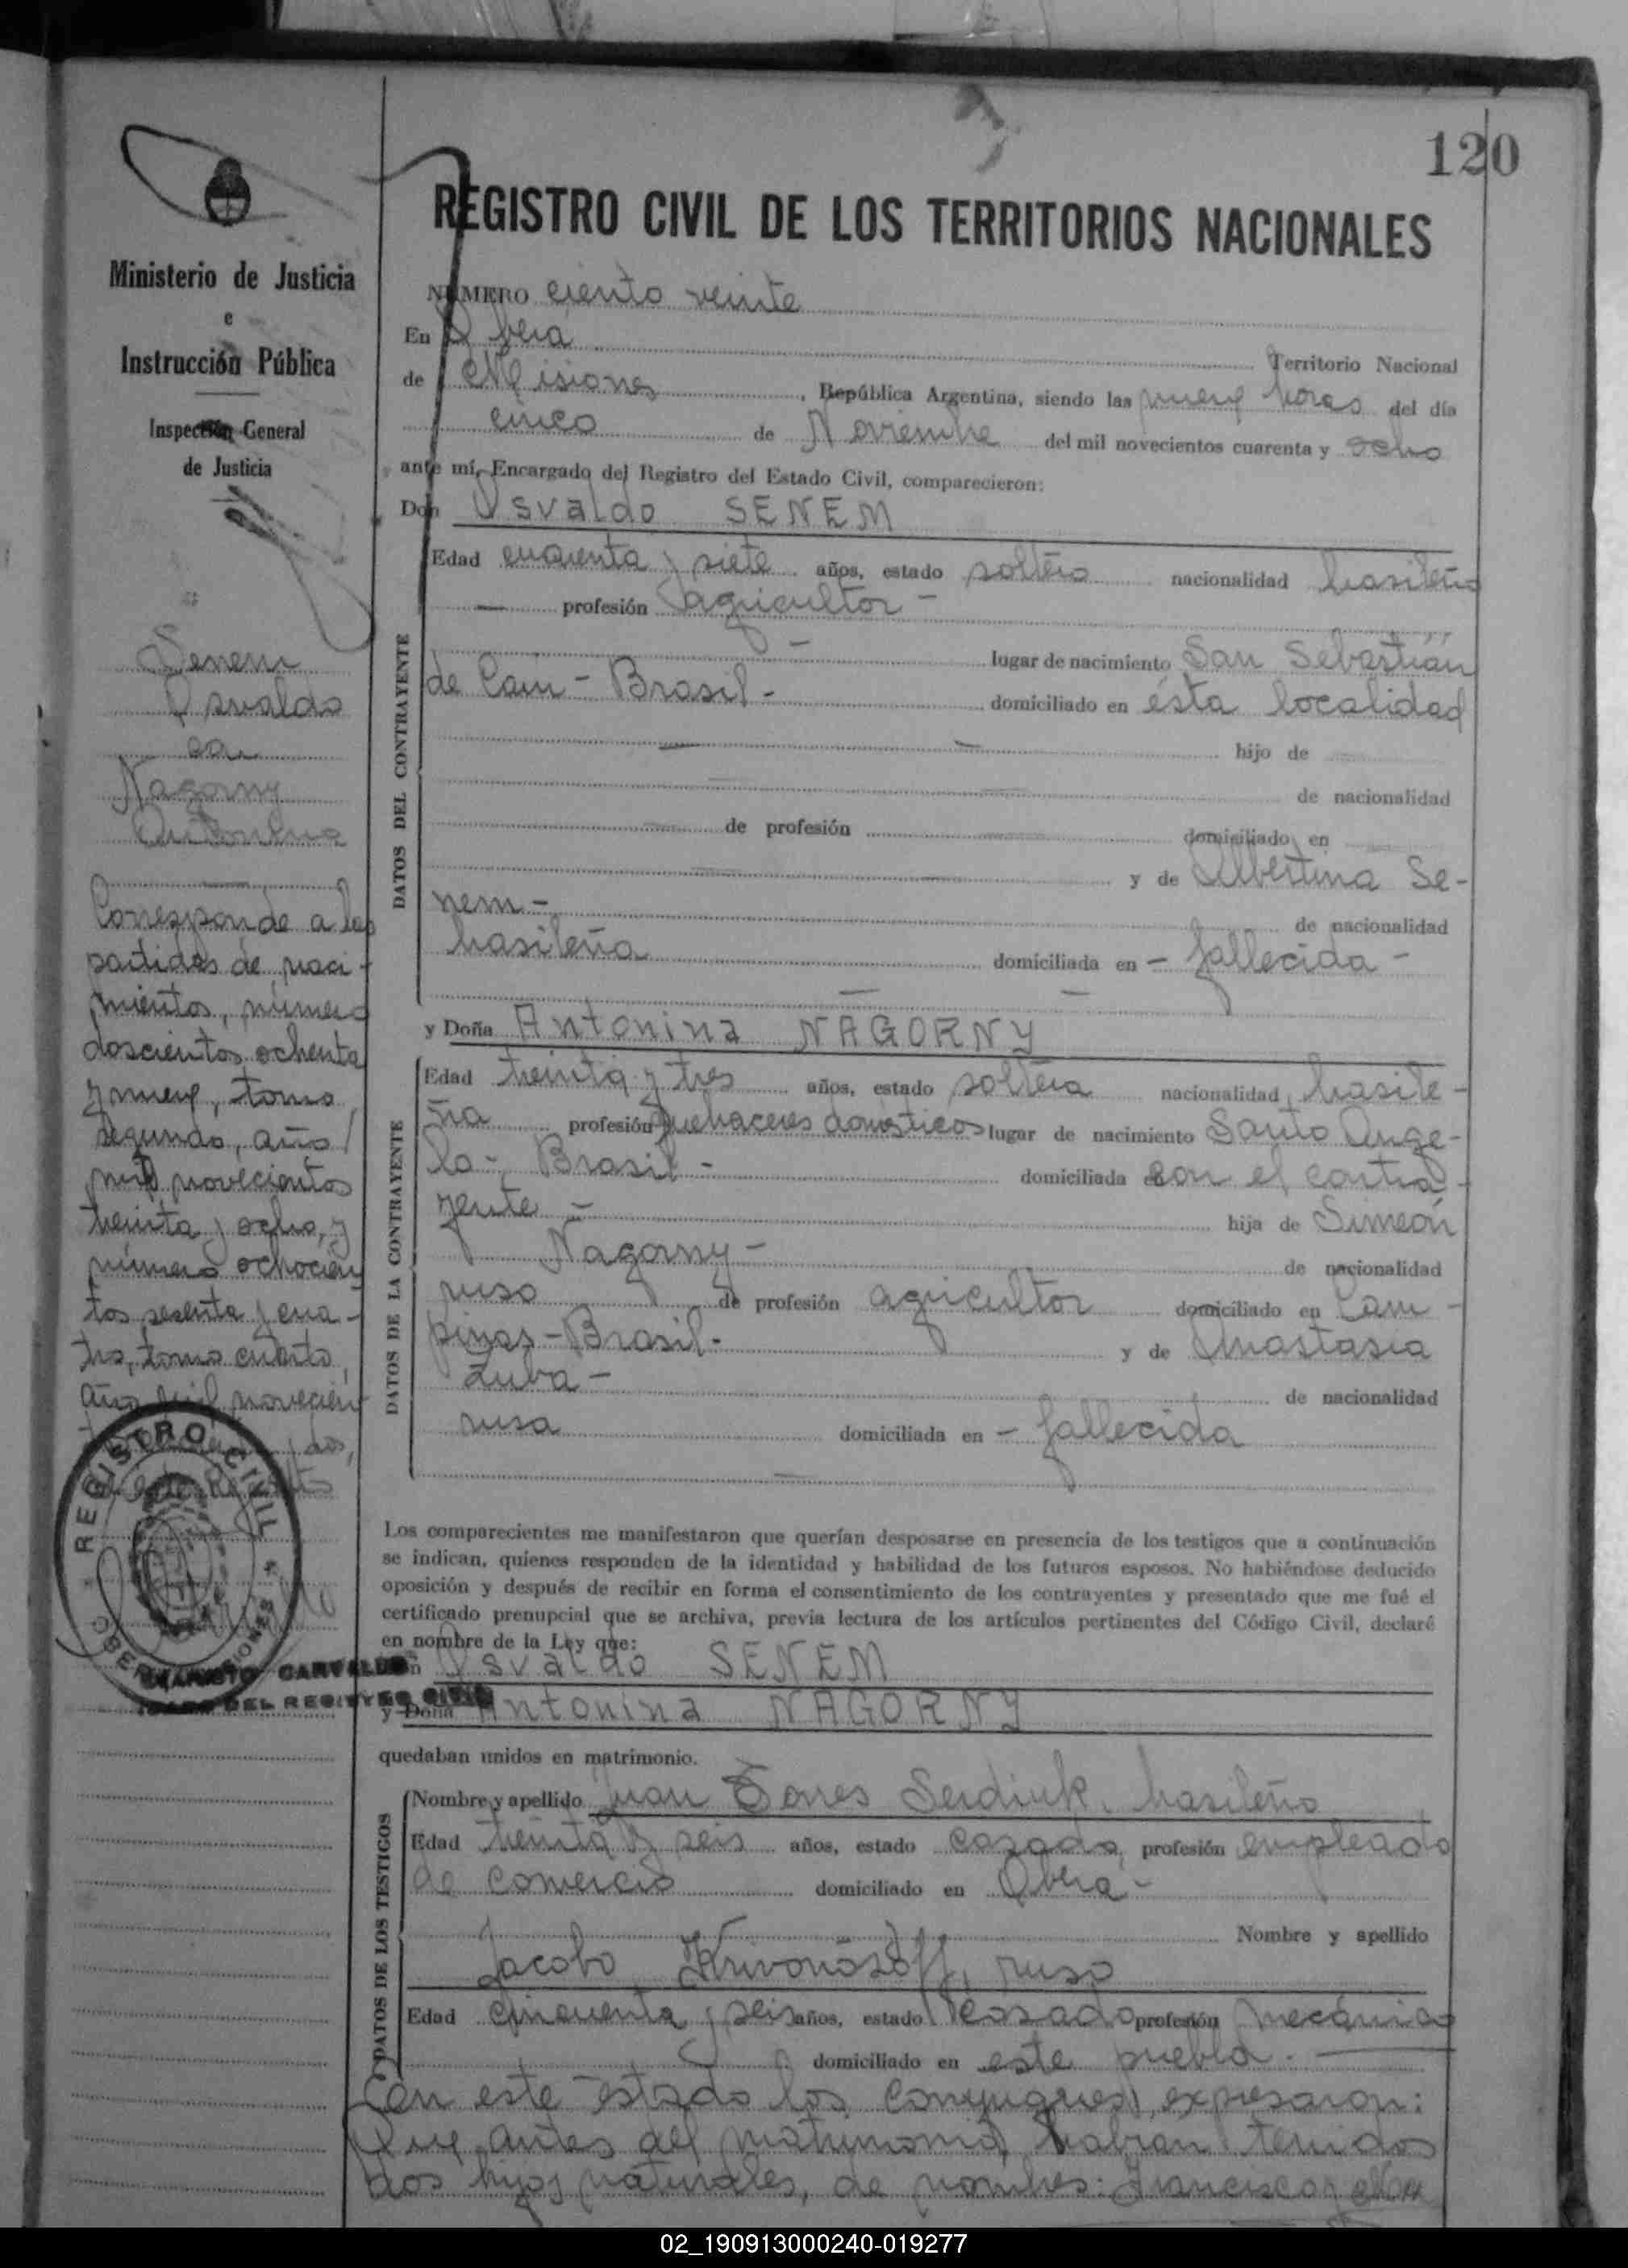 120
Ministerio de Justicia
e
Instrucción Pública
Inspección General
de Justicia
Senem
Osvaldo
con
Nagorny
Antonina
Corresponde a las
partidas de naci-
mientos, número
doscientos ochenta
y nueve, tomo
segundo, año
mil novecientos
treinta y ocho, y
número ochocien
tos sesenta y cua-
tro, tomo cuarto,
año mil novecien
dos,
REGISTRO CIVIL
OBERA MISIONES
CARVALHO
DEL REGISTRO CIVIL
REGISTRO CIVIL DE LOS TERRITORIOS NACIONALES
NUMERO ciento veinte
En Obera Territorio Nacional
de Misiones, República Argentina, siendo las nueve horas del día
cinco de Noviembre del mil novecientos cuarenta y ocho
ante mí, Encargado del Registro del Estado Civil, comparecieron:
Don Osvaldo SENEM
DATOS DEL CONTRAYENTE
Edad cuarenta y siete años, estado soltero nacionalidad brasileño
profesión agricultor -
lugar de nacimiento San Sebastián
de Cain - Brasil - domiciliado en ésta localidad
hijo de
de nacionalidad
de profesión domiciliado en
y de Albertina Se-
nem - de nacionalidad
brasileña domiciliada en - fallecida -
y Doña Antonina NAGORNY
DATOS DE LA CONTRAYENTE
Edad treinta y tres años, estado soltera nacionalidad brasile-
ña profesión quehaceres domésticos lugar de nacimiento Santo Ange-
lo - Brasil - domiciliada con el contra-
yente - hija de Simeón
Nagorny - de nacionalidad
ruso de profesión agricultor domiciliado en Cam-
pinas - Brasil - y de Anastasia
Zuba - de nacionalidad
rusa domiciliada en - fallecida
Los comparecientes me manifestaron que querían desposarse en presencia de los testigos que a continuación
se indican, quienes responden de la identidad y habilidad de los futuros esposos. No habiéndose deducido
oposición y después de recibir en forma el consentimiento de los contrayentes y presentado que me fué el
certificado prenupcial que se archiva, previa lectura de los artículos pertinentes del Código Civil, declaré
en nombre de la Ley que:
Don Osvaldo SENEM
y Doña Antonina NAGORNY
quedaban unidos en matrimonio.
DATOS DE LOS TESTIGOS
Nombre y apellido Juan Serdiuk, brasileño
Edad treinta y seis años, estado casado, profesión empleado
de comercio domiciliado en Obera -
Nombre y apellido
Jacobo Krivonosoff, ruso
Edad cincuenta y seis años, estado casado profesión mecánico
domiciliado en este pueblo.
En este estado los conyugues, expresaron:
Que antes del matrimonio, habian tenidos
dos hijos naturales, de nombres: Francisco y
02_190913000240-019277